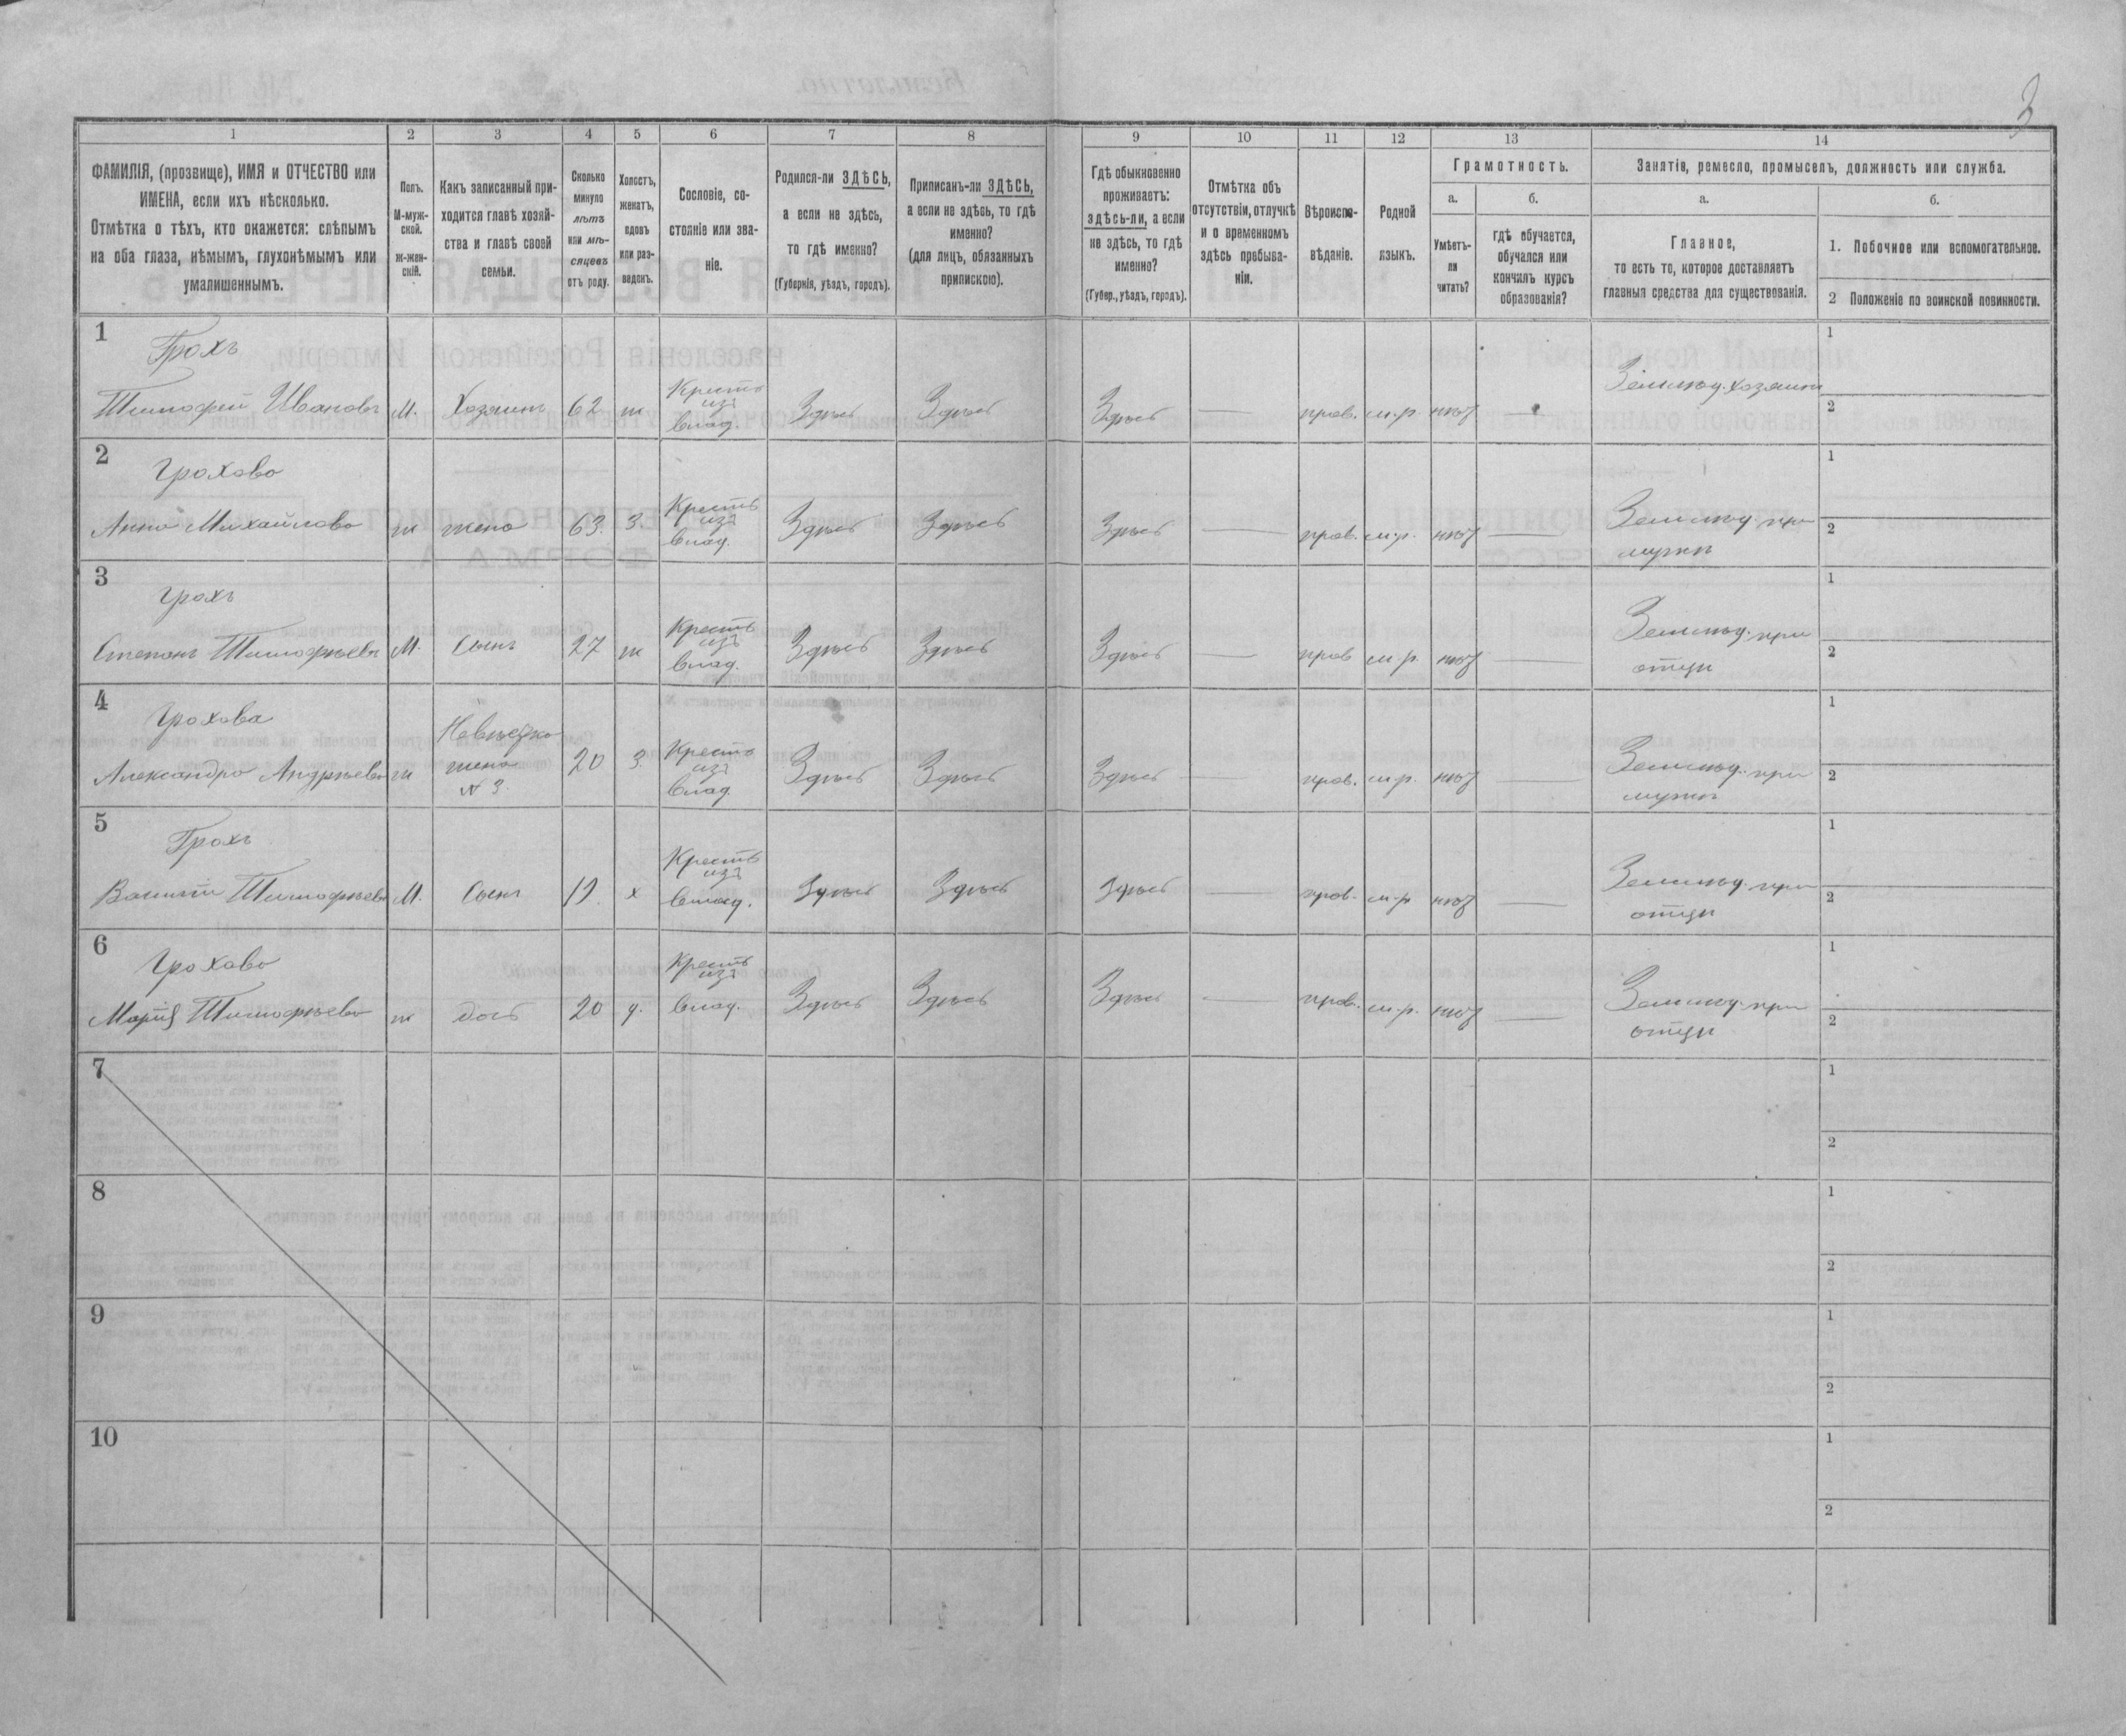 3
1 2 3 4 5 6 7 8 9 10 11 12 13 14
ФАМИЛІЯ, (прозвище), ИМЯ и ОТЧЕСТВО или
ИМЕНА, если ихъ нѣсколько.
Отмѣтка о тѣхъ, кто окажется: слѣпымъ
на оба глаза, нѣмымъ, глухонѣмымъ или
умалишеннымъ.
Полъ.
М-муж-
ской.
ж-жен-
скій.
Какъ записанный при-
ходится главѣ хозяй-
ства и главѣ своей
семьи.
Сколько
минуло
лѣтъ
или мѣ-
сяцевъ
отъ роду.
Холостъ,
женатъ,
вдовъ
или раз-
веденъ.
Сословіе, со-
стояніе или зва-
ніе.
Родился-ли ЗДѢСЬ,
а если не здѣсь,
то гдѣ именно?
(Губернія, уѣздъ, городъ).
Приписанъ-ли ЗДѢСЬ,
а если не здѣсь, то гдѣ
именно?
(для лицъ, обязанныхъ
припискою).
Гдѣ обыкновенно
проживаетъ:
здѣсь-ли, а если
не здѣсь, то гдѣ
именно?
(Губер., уѣздъ, городъ).
Отмѣтка объ
отсутствіи, отлучкѣ
и о временномъ
здѣсь пребыва-
ніи.
Вѣроиспо-
вѣданіе.
Родной
языкъ.
Грамотность.
а.
Умѣетъ-
ли
читать?
б.
гдѣ обучается,
обучался или
кончилъ курсъ
образованія?
Занятія, ремесло, промыселъ, должность или служба.
а.
Главное,
то есть то, которое доставляетъ
главныя средства для существованія.
б.
1. Побочное или вспомогательное.
2 Положеніе по воинской повинности.
1
Грохъ
Тимофей Ивановъ М. Хозяинъ 62 ж
Крестъ
изъ
влад.
Здѣсь Здѣсь Здѣсь — прав. м.р нѣт —
Земледѣ. хозяинъ
1
2
2
Грохова
Анна Михайлова ж жена 63. З.
Крестъ
изъ
влад.
Здѣсь Здѣсь Здѣсь — прав. м.р. нѣт —
Земледѣ. при
мужѣ
1
2
3
Грохъ
Степанъ Тимофѣевъ М. Сынъ 27 ж
Крестъ
изъ
влад.
Здѣсь Здѣсь Здѣсь — прав м.р. нѣт —
Земледѣ. при
отцѣ
1
2
4
Грохова
Александра Андрѣева ж
Невѣстка
жена
№ 3.
20 З.
Крестъ
изъ
влад.
Здѣсь Здѣсь Здѣсь — прав. м.р. нѣт —
Земледѣ. при
мужѣ
1
2
5
Грохъ
Тимофѣевъ М. Сынъ х
Крестъ
изъ
влад.
Здѣсь Здѣсь Здѣсь — прав. м.р нѣт —
Земледѣ. при
отцѣ
1
2
6
Грохова
Марія Тимофѣева ж дочь 20 д.
Крестъ
изъ
влад.
Здѣсь Здѣсь Здѣсь — прав. м.р. нѣт —
Земледѣ. при
отцѣ
1
2
7
1
2
8
1
2
9
1
2
10
1
2